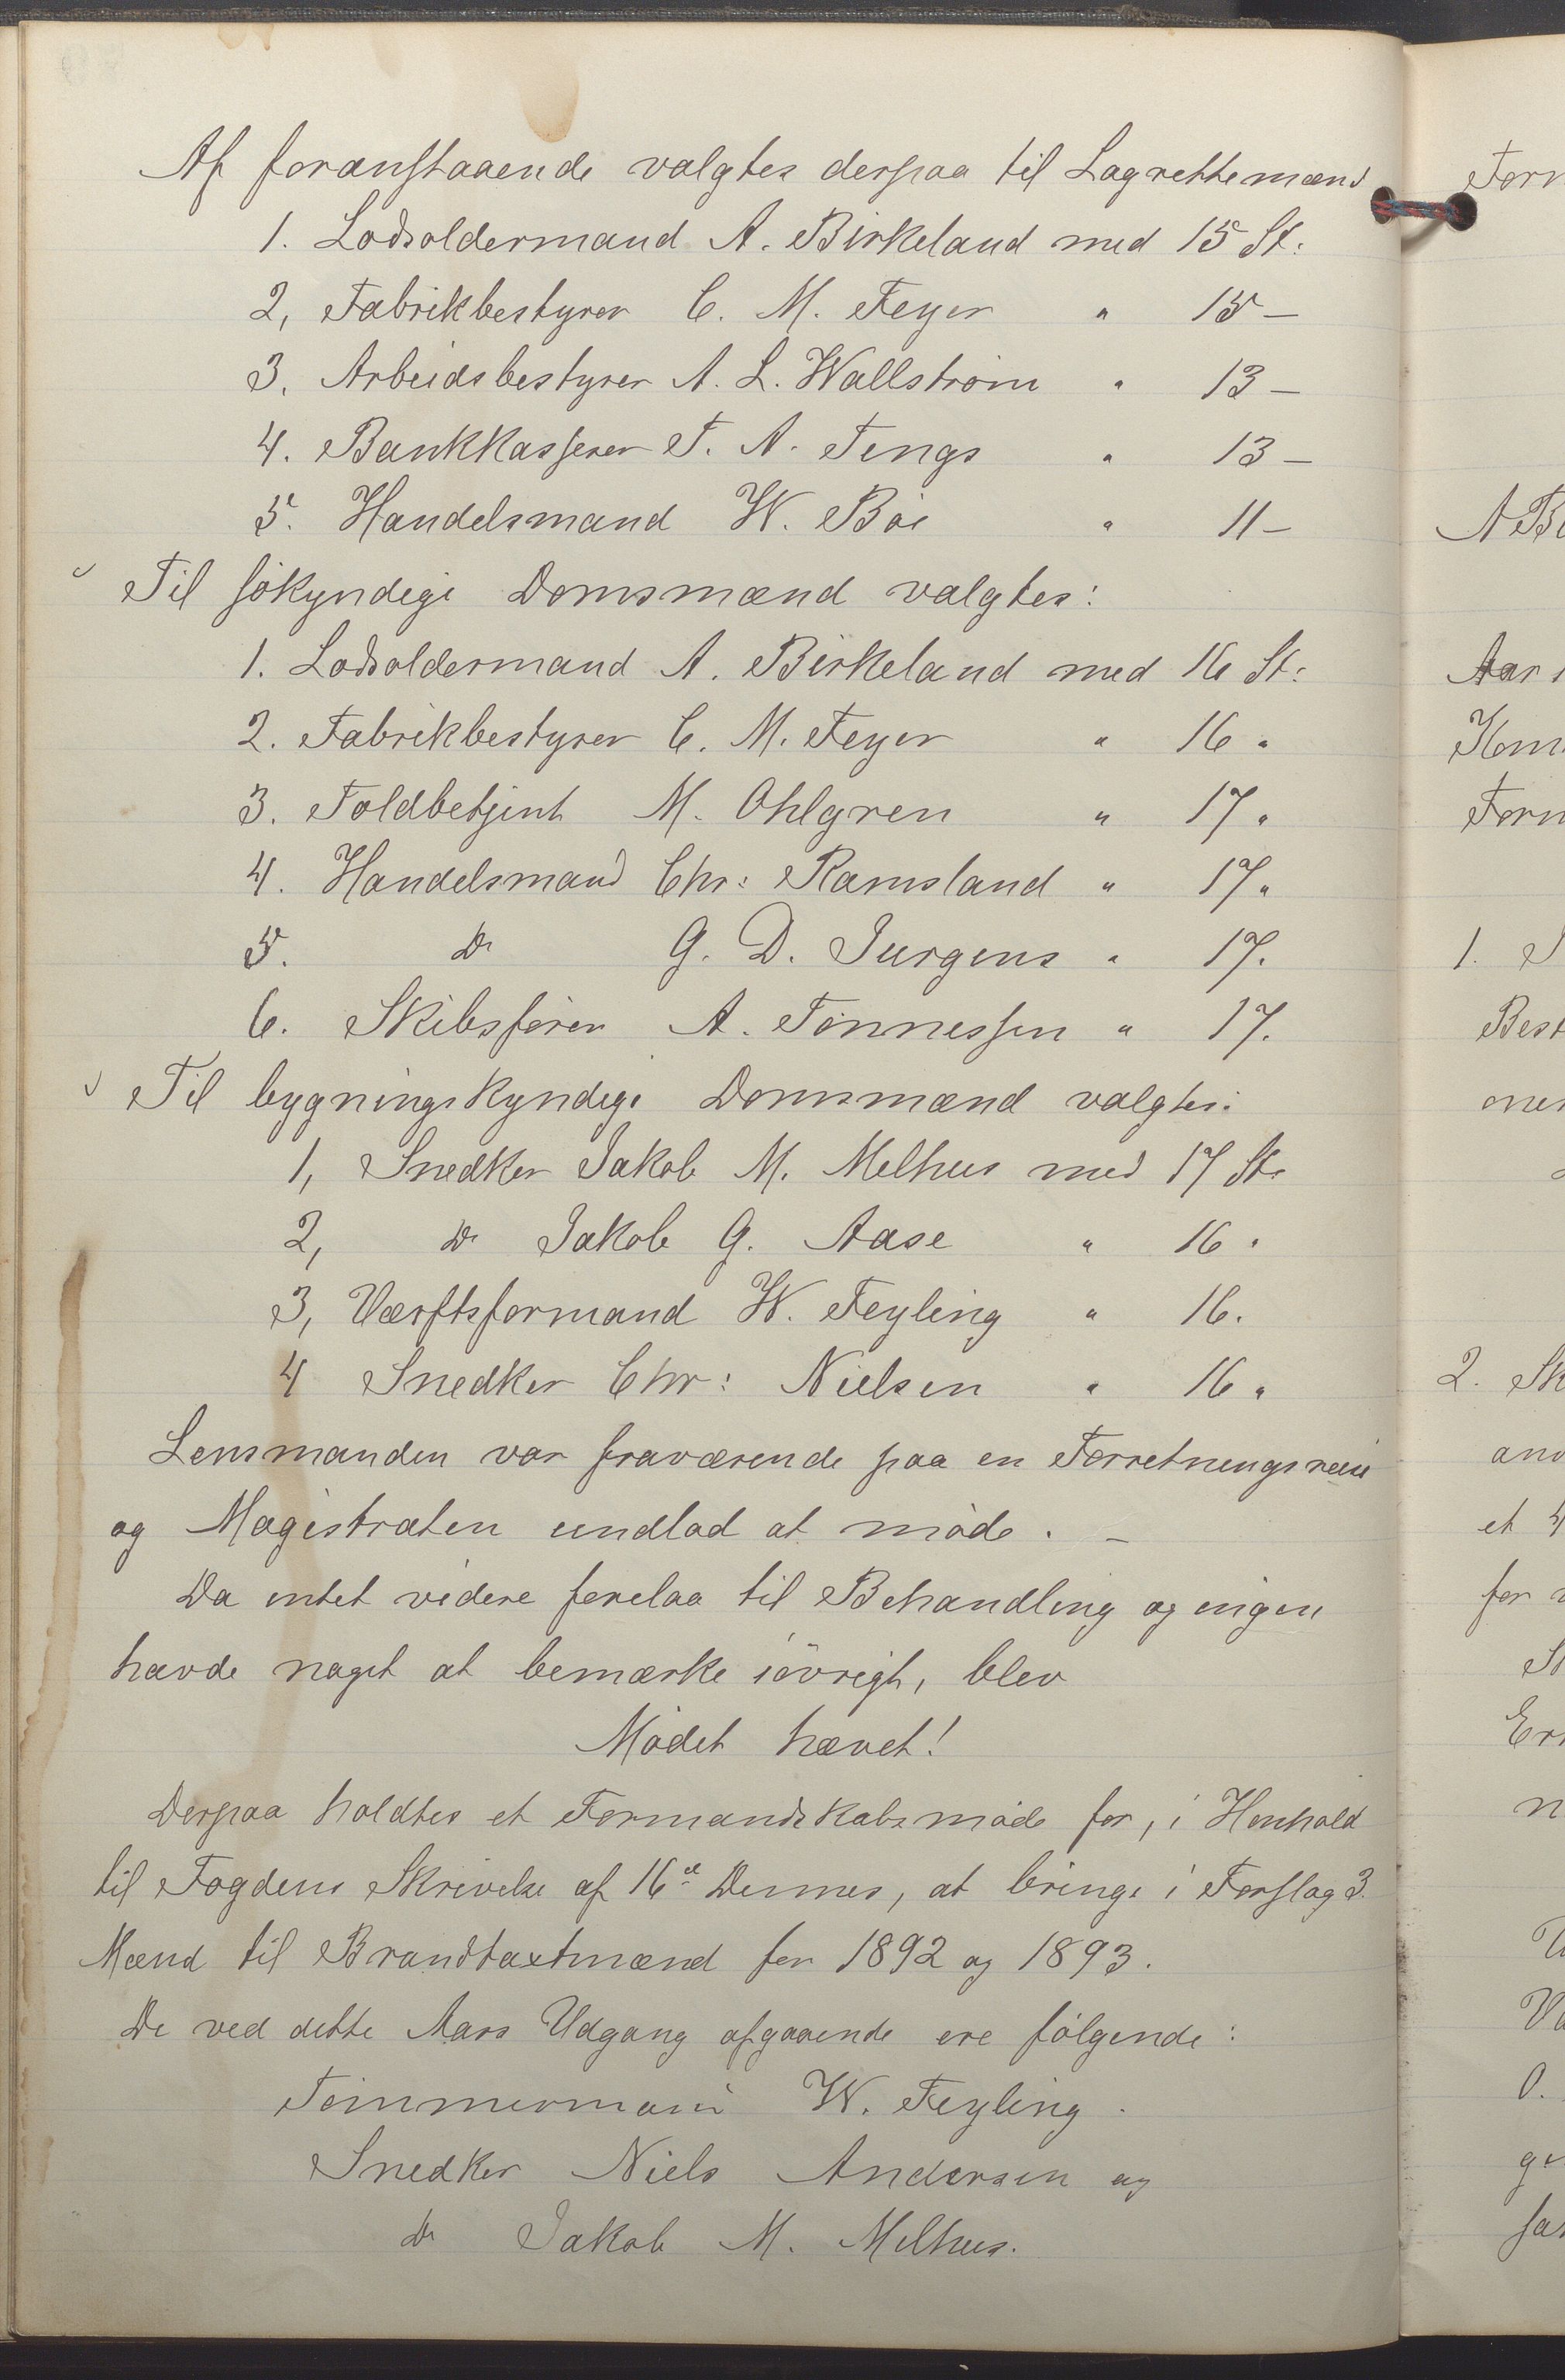 Af foranstaaende valgtes derpaa til Lagrettemænd
1. Lodsoldermand A. Birkeland med 15 St:
2, Fabrikbestyrer C. M. Feyer " 15 –
3. Arbeidsbestyrer A. L. Wallstrøm " 13 –
4. Bankkasserer T. A. Fengs " 13 –
5. Handelsmand W. Bøe " 11 –
Til søkyndige Domsmænd valgtes:
1. Lodsoldermand A. Birkeland med 16 St:
2. Fabrikbestyrer C. M. Feyer " 16 "
3. Toldbetjent M. Ohlgren " 17 "
4. Handelsmand Chr: Ramsland " 17 "
5. Do G. D. Jurgens " 17.
6. Skibsfører A. Tønnessen " 17.
Til bygningskyndige Domsmænd valgtes:
1, Snedker Jakob M. Melhus med 17 St:
2, Do Jakob G. Aase " 16 "
3, Værftsformand W. Feyling " 16.
4 Snedker Chr: Nielsen " 16 "
Lensmanden var fraværende paa en Forretningsreise
og Magistraten undlod at møde. –
Da intet videre forelaa til Behandling og ingen
havde noget at bemærke iøvrigt, blev
Mødet hævet!
Derpaa holdtes et Formandskabsmøde for, i Henhold
til Fogdens Skrivelse af 16de Dennes, at bringe i Forslag 3
Mænd til Brandtaxtmænd for 1892 og 1893.
De ved dette Aars Udgang afgaaende ere følgende:
Tømmermand W. Feyling.
Snedker Niels Andersen og
Do Jakob M. Melhus.